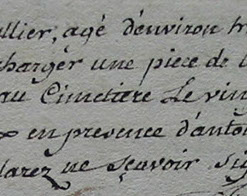 llier, agé denviron tr
charger une piece de
au Cimetiere Le vin
en presence d'anto
larez ne sçavoir si